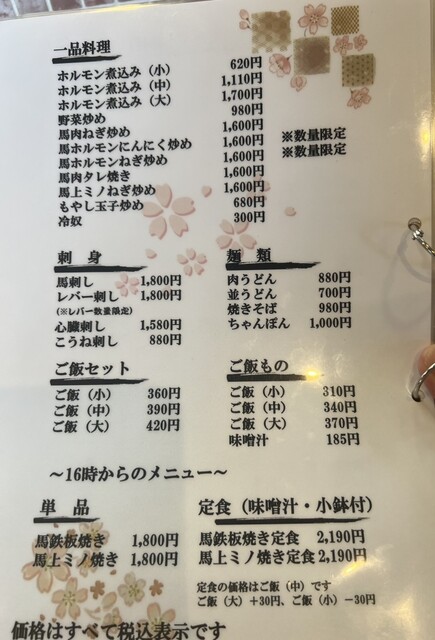 一品料理
ホルモン煮込み（小） 620円
ホルモン煮込み（中） 1,110円
ホルモン煮込み（大） 1,700円
野菜炒め 980円
馬肉ねぎ炒め 1,600円
馬ホルモンにんにく炒め 1,600円 ※数量限定
馬ホルモンねぎ炒め 1,600円 ※数量限定
馬肉タレ焼き 1,600円
馬上ミノねぎ炒め 1,600円
もやし玉子炒め 680円
冷奴 300円
刺 身
馬刺し 1,800円
レバー刺し 1,800円
(※レバー数量限定)
心臓刺し 1,580円
こうね刺し 880円
麺 類
肉うどん 880円
並うどん 700円
焼きそば 980円
ちゃんぽん 1,000円
ご飯セット
ご飯（小） 360円
ご飯（中） 390円
ご飯（大） 420円
ご飯もの
ご飯（小） 310円
ご飯（中） 340円
ご飯（大） 370円
味噌汁 185円
～16時からのメニュー～
単 品
馬鉄板焼き 1,800円
馬上ミノ焼き 1,800円
定食（味噌汁・小鉢付）
馬鉄板焼き定食 2,190円
馬上ミノ焼き定食 2,190円
定食の価格はご飯（中）です
ご飯（大）＋30円、ご飯（小）－30円
価格はすべて税込表示です